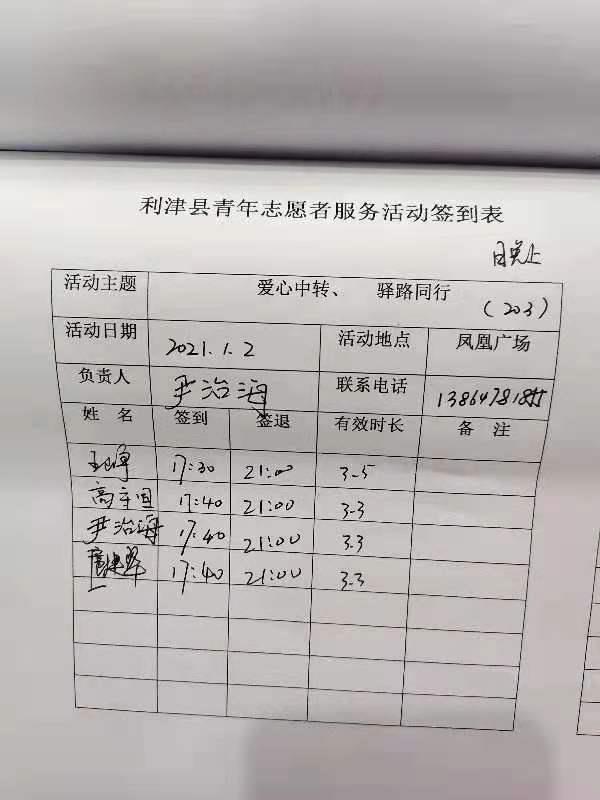 利津县青年志愿者服务活动签到表
晚上
活动主题 爱心中转、 驿路同行
(203)
活动日期 2021.1.2 活动地点 凤凰广场
负责人 尹治海 联系电话
姓 名 签到 签退 有效时长 备 注
17:30 21:00 3.5
17:40 21:00 3.3
尹治海 17:40 21:00 3.3
17:40 21:00 3.3